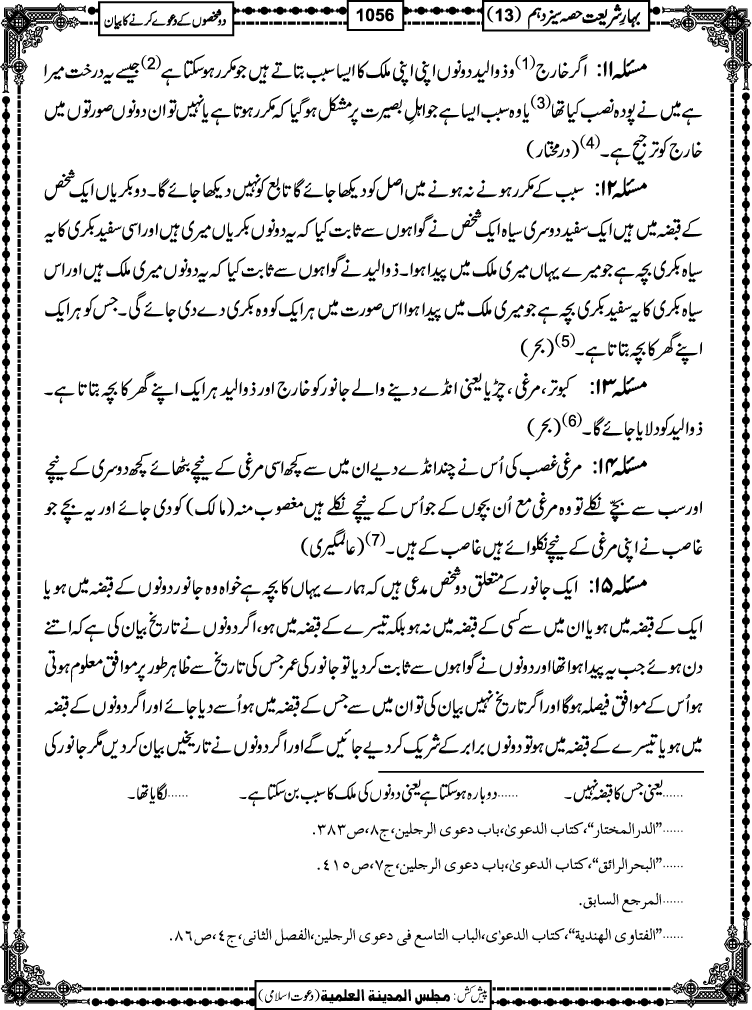 بہارِشریعت حصہ سیزدہم (13)
1056
دو شخصوں کے دعوے کرنے کا بیان
مسئلہ ۱۱: اگر خارج(1) و ذوالید دونوں اپنی اپنی ملک کا ایسا سبب بتاتے ہیں جو مکرر ہوسکتا ہے(2) جیسے یہ درخت میرا
ہے میں نے پودہ نصب کیا تھا(3) یا وہ سبب ایسا ہے جو اہلِ بصیرت پر مشکل ہوگیا کہ مکرر ہوتا ہے یا نہیں تو ان دونوں صورتوں میں
خارج کو ترجیح ہے۔(4) (درمختار)
مسئلہ ۱۲: سبب کے مکرر ہونے نہ ہونے میں اصل کو دیکھا جائے گا تابع کو نہیں دیکھا جائے گا۔ دو بکریاں ایک شخص
کے قبضہ میں ہیں ایک سفید دوسری سیاہ ایک شخص نے گواہوں سے ثابت کیا کہ یہ دونوں بکریاں میری ہیں اور اسی سفید بکری کا یہ
سیاہ بکری بچہ ہے جو میرے یہاں میری ملک میں پیدا ہوا۔ ذوالید نے گواہوں سے ثابت کیا کہ یہ دونوں میری ملک ہیں اور اس
سیاہ بکری کا یہ سفید بکری بچہ ہے جو میری ملک میں پیدا ہوا اس صورت میں ہر ایک کو وہ بکری دے دی جائے گی۔ جس کو ہر ایک
اپنے گھر کا بچہ بتاتا ہے۔(5) (بحر)
مسئلہ ۱۳: کبوتر، مرغی، چڑیا یعنی انڈے دینے والے جانور کو خارج اور ذوالید ہر ایک اپنے گھر کا بچہ بتاتا ہے۔
ذوالید کو دلایا جائے گا۔(6) (بحر)
مسئلہ ۱۴: مرغی غصب کی اُس نے چند انڈے دیے ان میں سے کچھ اسی مرغی کے نیچے بٹھائے کچھ دوسری کے نیچے
اور سب سے بچّے نکلے تو وہ مرغی مع اُن بچوں کے جو اُس کے نیچے نکلے ہیں مغصوب منہ (مالک) کو دی جائے اور یہ بچے جو
غاصب نے اپنی مرغی کے نیچے نکلوائے ہیں غاصب کے ہیں۔(7) (عالمگیری)
مسئلہ ۱۵: ایک جانور کے متعلق دو شخص مدعی ہیں کہ ہمارے یہاں کا بچہ ہے خواہ وہ جانور دونوں کے قبضہ میں ہو یا
ایک کے قبضہ میں ہو یا ان میں سے کسی کے قبضہ میں نہ ہو بلکہ تیسرے کے قبضہ میں ہو، اگر دونوں نے تاریخ بیان کی ہے کہ اتنے
دن ہوئے جب یہ پیدا ہوا تھا اور دونوں نے گواہوں سے ثابت کردیا تو جانور کی عمر جس کی تاریخ سے ظاہر طور پر موافق معلوم ہوتی
ہو اُس کے موافق فیصلہ ہوگا اور اگر تاریخ نہیں بیان کی تو ان میں سے جس کے قبضہ میں ہو اُسے دیا جائے اور اگر دونوں کے قبضہ
میں ہو یا تیسرے کے قبضہ میں ہو تو دونوں برابر کے شریک کردیے جائیں گے اور اگر دونوں نے تاریخیں بیان کردیں مگر جانور کی
......یعنی جس کا قبضہ نہیں۔ ......دوبارہ ہوسکتا ہے یعنی دونوں کی ملک کا سبب بن سکتا ہے۔ ......لگایا تھا۔
......"الدرالمختار"، کتاب الدعویٰ، باب دعوی الرجلین، ج۸، ص۳۸۳.
......"البحرالرائق"، کتاب الدعویٰ، باب دعوی الرجلین، ج۷، ص۴۱۵.
......المرجع السابق.
......"الفتاوی الھندیة"، کتاب الدعوٰی، الباب التاسع فی دعوی الرجلین، الفصل الثانی، ج۴، ص۸۶.
پیش کش: مجلس المدینة العلمیة (دعوت اسلامی)